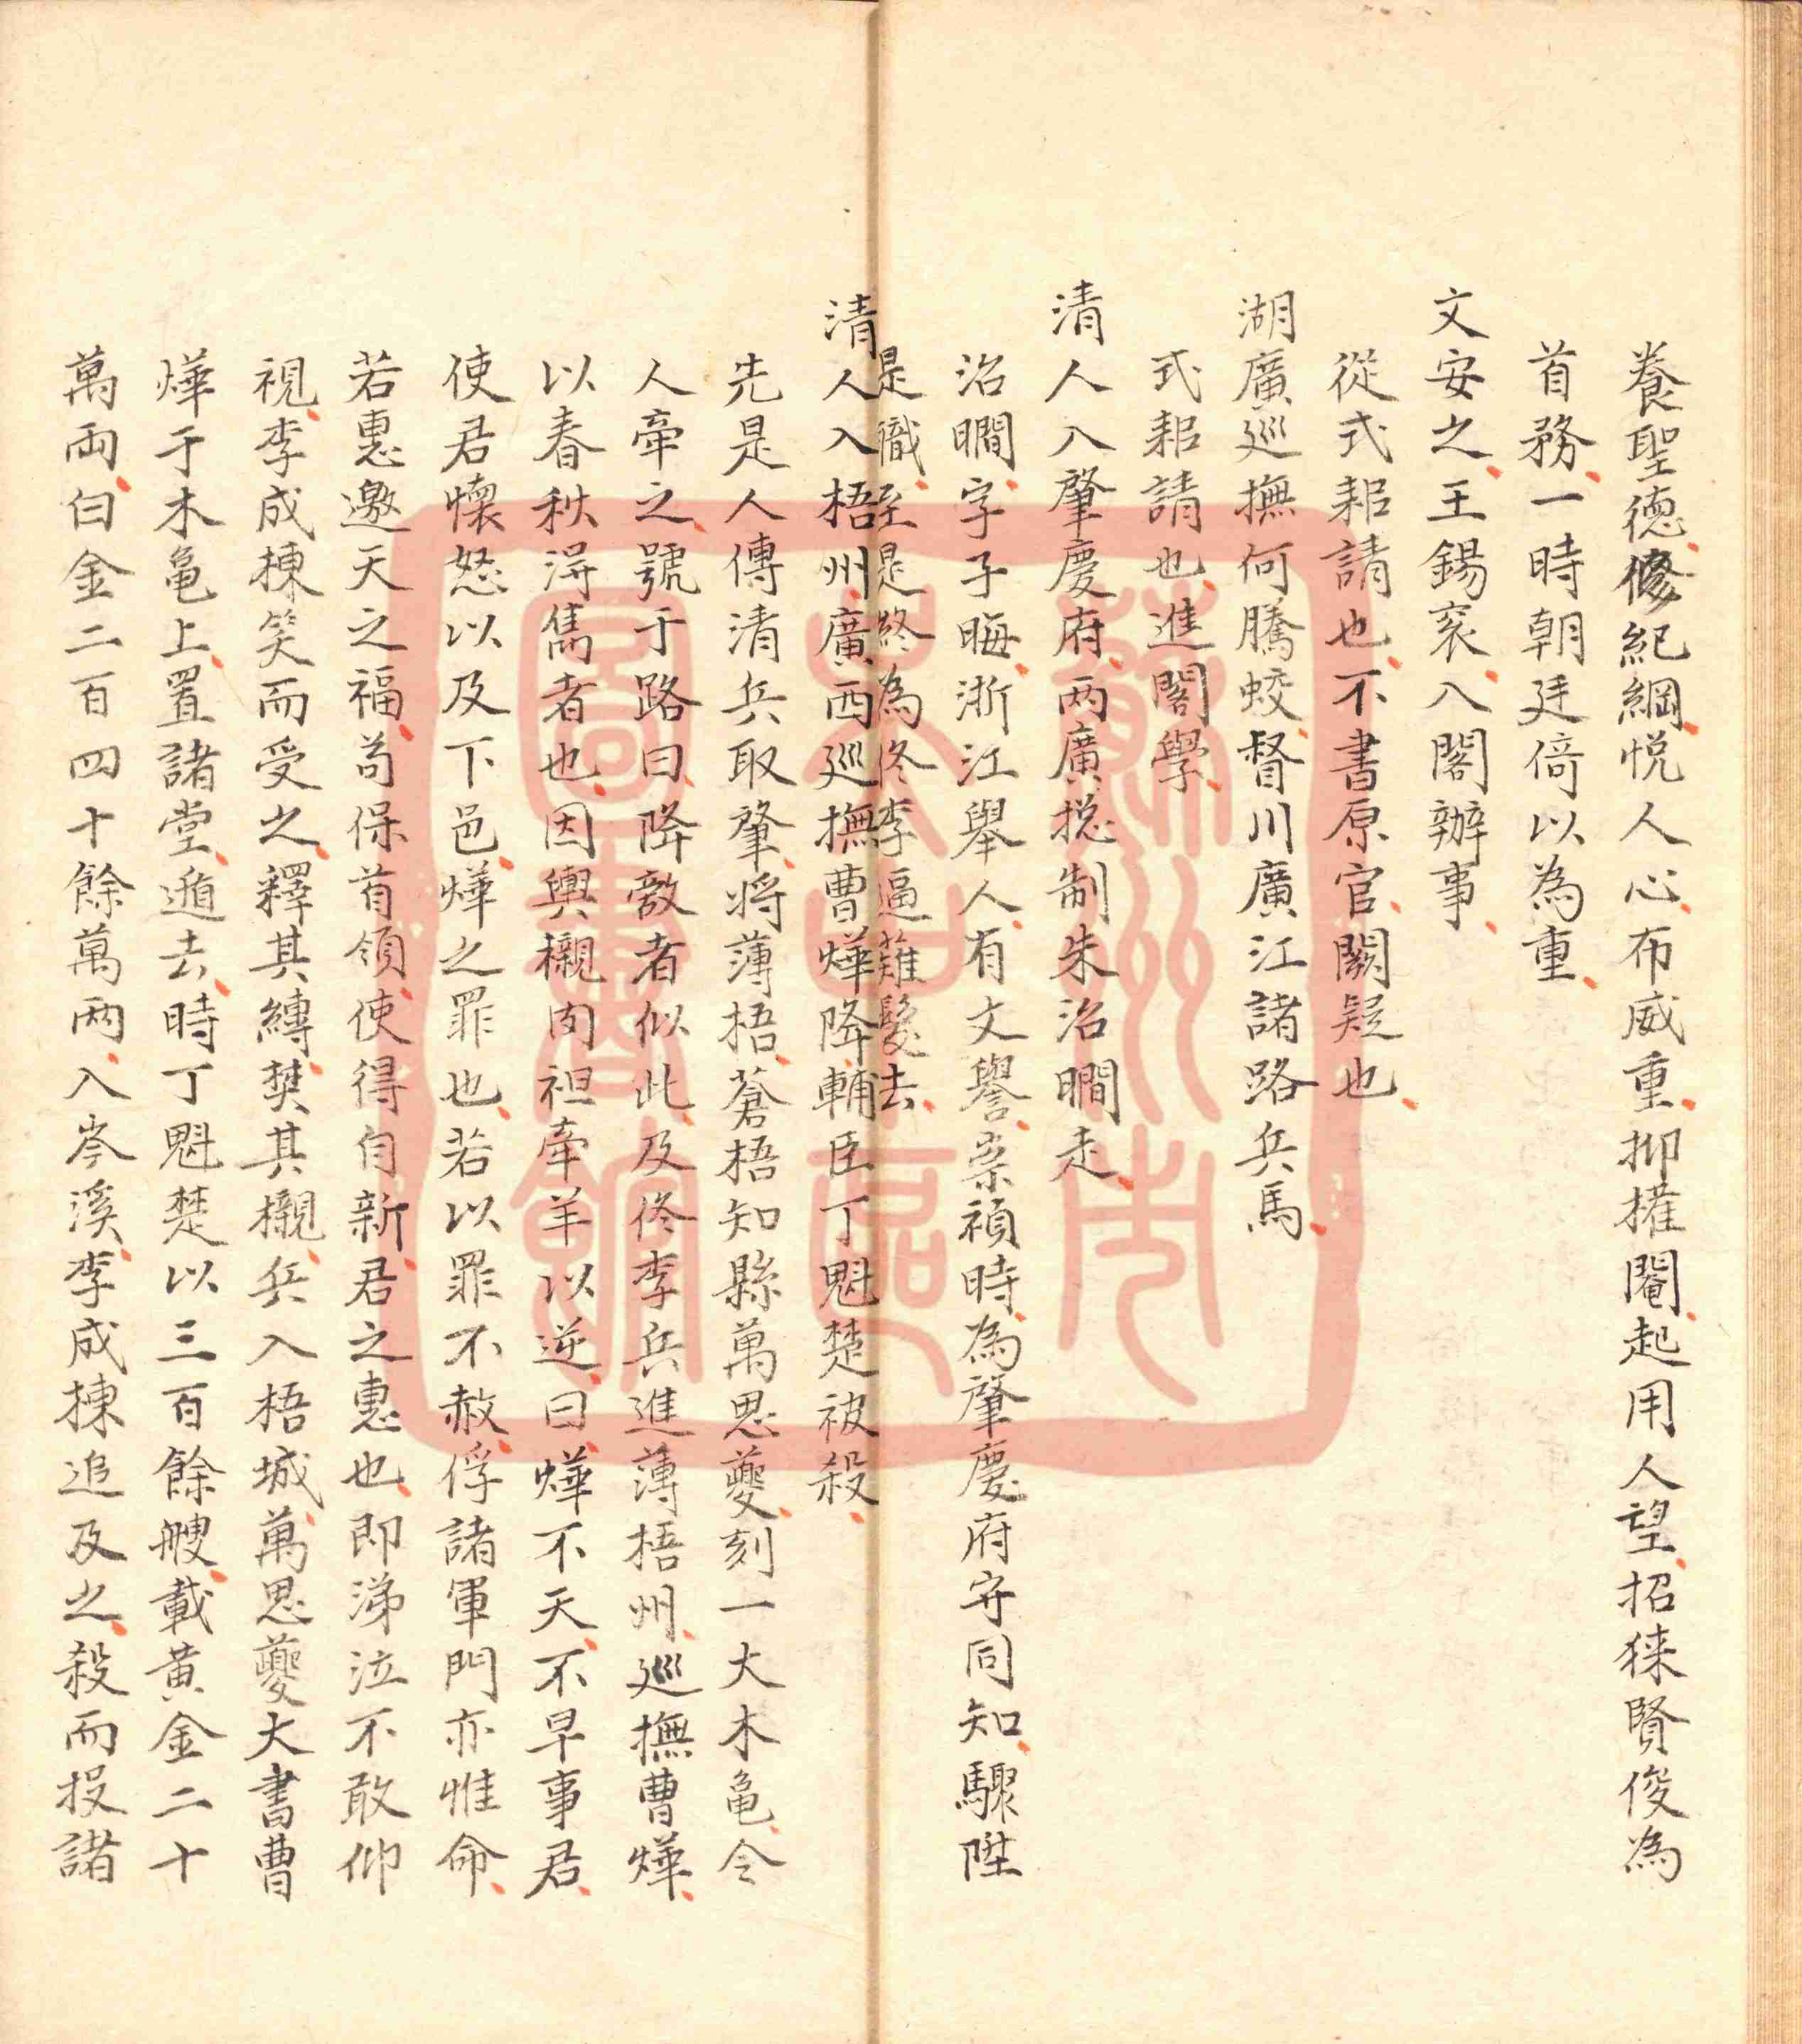 養聖德、修紀綱、悦人心、布威重、抑權閹、起用人望、招徠賢俊為
首務、一時朝廷倚以為重、
文安之、王錫袞、入閣辦事、
從式耜請也、不書原官、闕疑也、
湖廣巡撫何騰蛟、督川廣江諸路兵馬、
式耜請也、進閣學、
清人入肇慶府、两廣捴制朱治𣉙走、
治𣉙、字子晦、浙江舉人、有文譽、崇禎時、為肇慶府守同知、驟陞
是職、至是終為佟李逼薙髮去、
清人入梧州、廣西巡撫曹燁降、輔臣丁魁楚被殺、
先是人傳清兵取肇、將薄梧、蒼梧知縣萬思夔、刻一大木亀、令
人牽之、號于路曰、降敵者似此、及佟李兵進薄梧州、巡撫曹燁、
以春秋淂雋者也、因輿櫬肉袒牽羊以逆、曰、燁不天、不早事君、
使君懷怒以及下邑、燁之罪也、若以罪不赦、俘諸軍門亦惟命、
若惠邀天之福、苟保首領、使得自新、君之惠也、即涕泣不敢仰
視、李成棟笑而受之、釋其縳、焚其櫬、兵入梧城、萬思夔大書曹
燁于木亀上、置諸堂、遁去、時丁魁楚以三百餘艘、載黃金二十
萬両、白金二百四十餘萬两、入岑溪、李成棟追及之、殺而投諸
蘇州市
圖書館